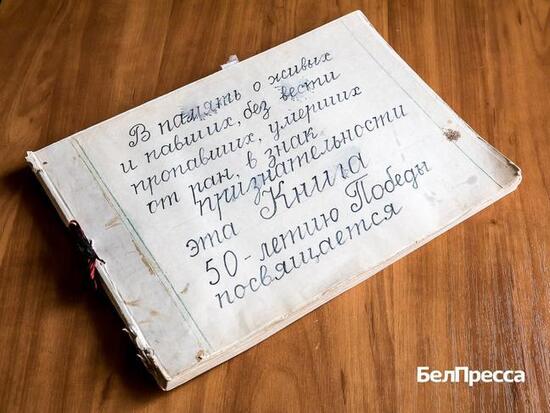 В память о живых
и павших, без вести
пропавших, умерших
от ран, в знак
признательности
эта Книга
50-летию Победы
посвящается
БелПресса